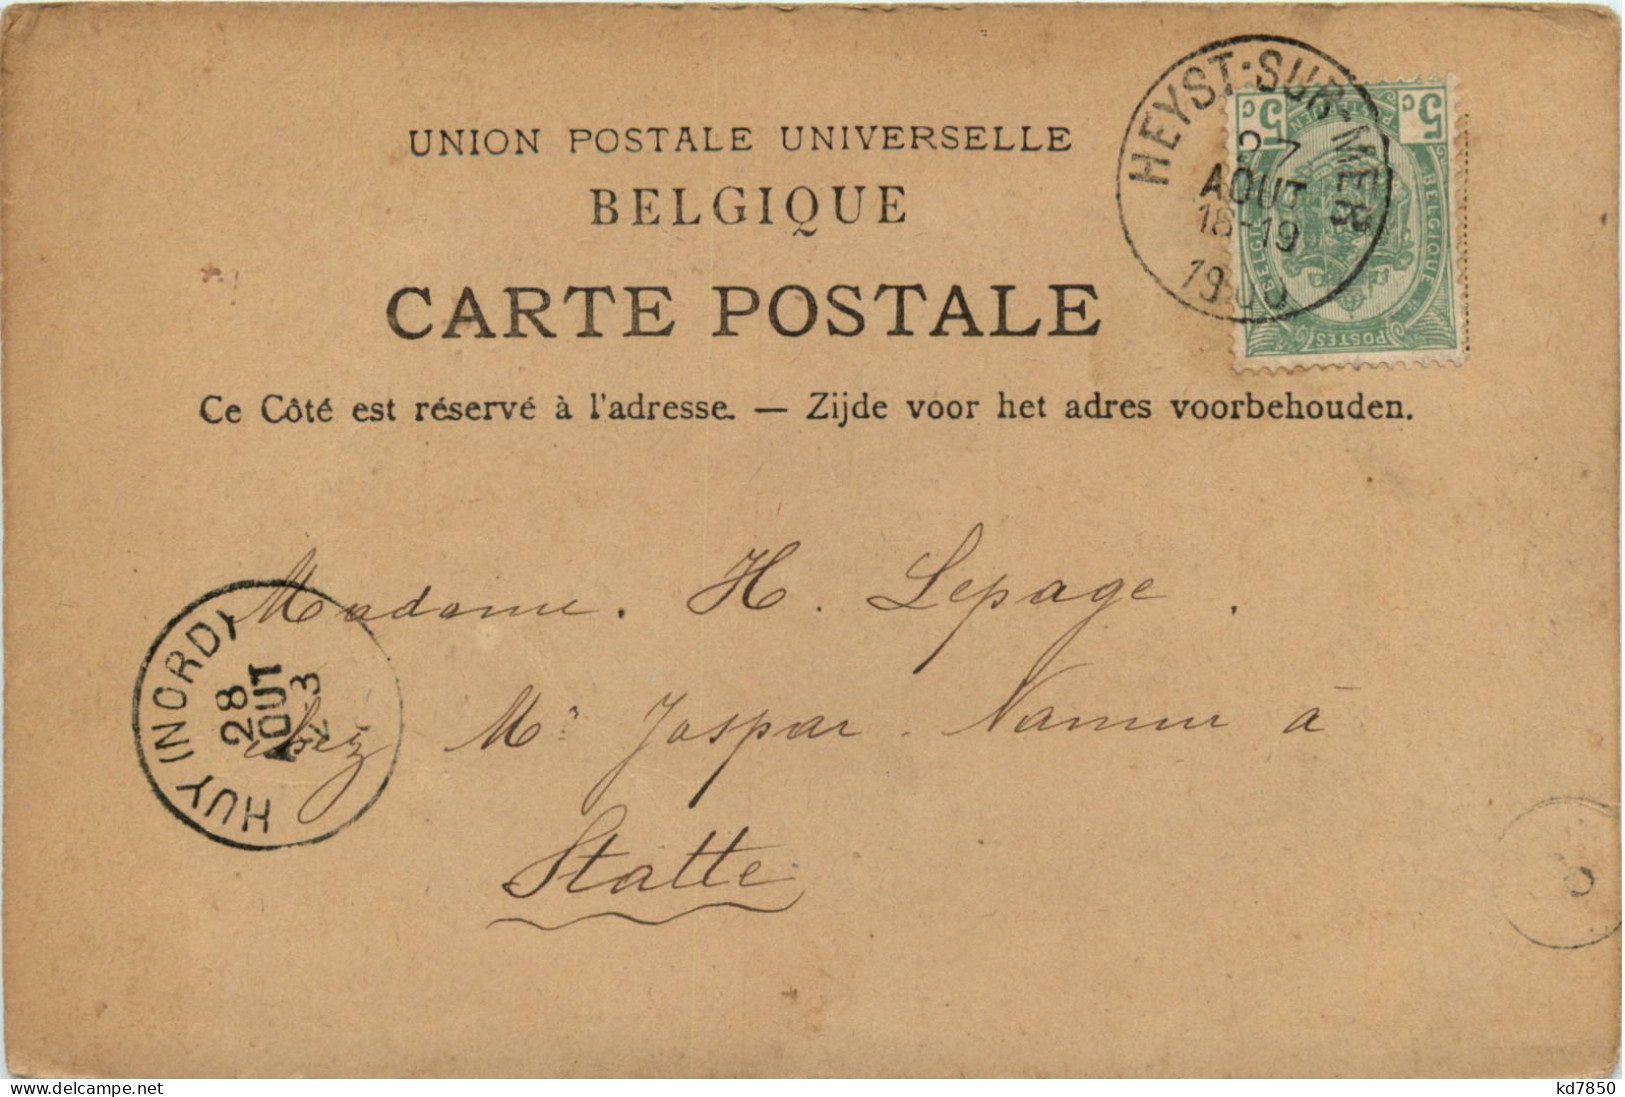 UNION POSTALE UNIVERSELLE
BELGIQUE
CARTE POSTALE
Ce Côté est réservé à l'adresse. — Zijde voor het adres voorbehouden.
HEYST-SUR-MER
27
AOUT
18-19
1900
5c 5c
POSTERIJEN
BELGIE BELGIQUE
POSTES
Madame. H. Lepage.
chez Mr Jaspar. Namur à
Statte
HUY (NORD)
28
AOUT
2-3
www.delcampe.net
kd7850